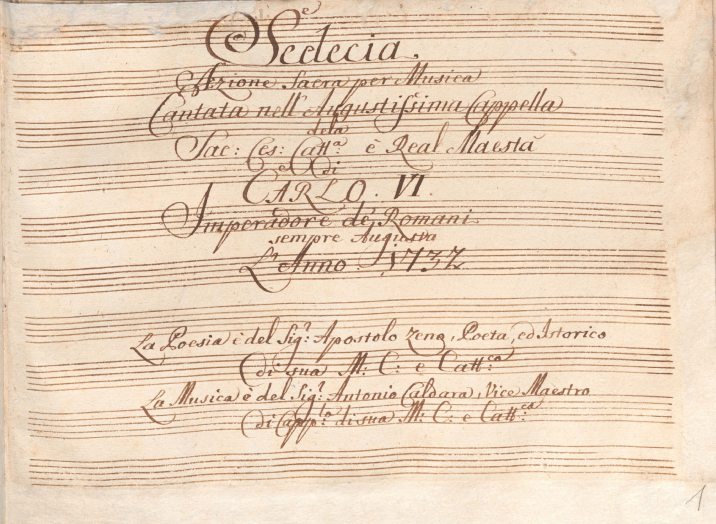 Sedecia.
Azione Sacra per Musica
Cantata nell' Augustissima Cappella
dela
Sac: Ces: Catt:ª e Real Maestà
di
CARLO. VI.
Imperadore de Romani
sempre Augusto
L'Anno 1732
La Poesia è del Sig:r Apostolo Zeno, Poeta, ed Istorico
di sua M: C: e Catt:ca
La Musica è del Sig:r Antonio Caldara, Vice Maestro
di Capp:la di sua M: C: e Catt:ca
1